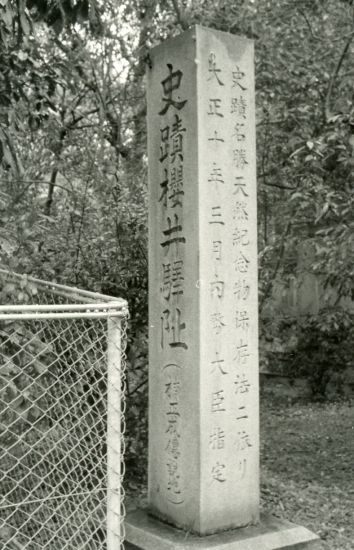 史蹟櫻井驛阯（楠正成傳說地）
史蹟名勝天然紀念物保存法ニ依リ
大正十年三月內務大臣指定